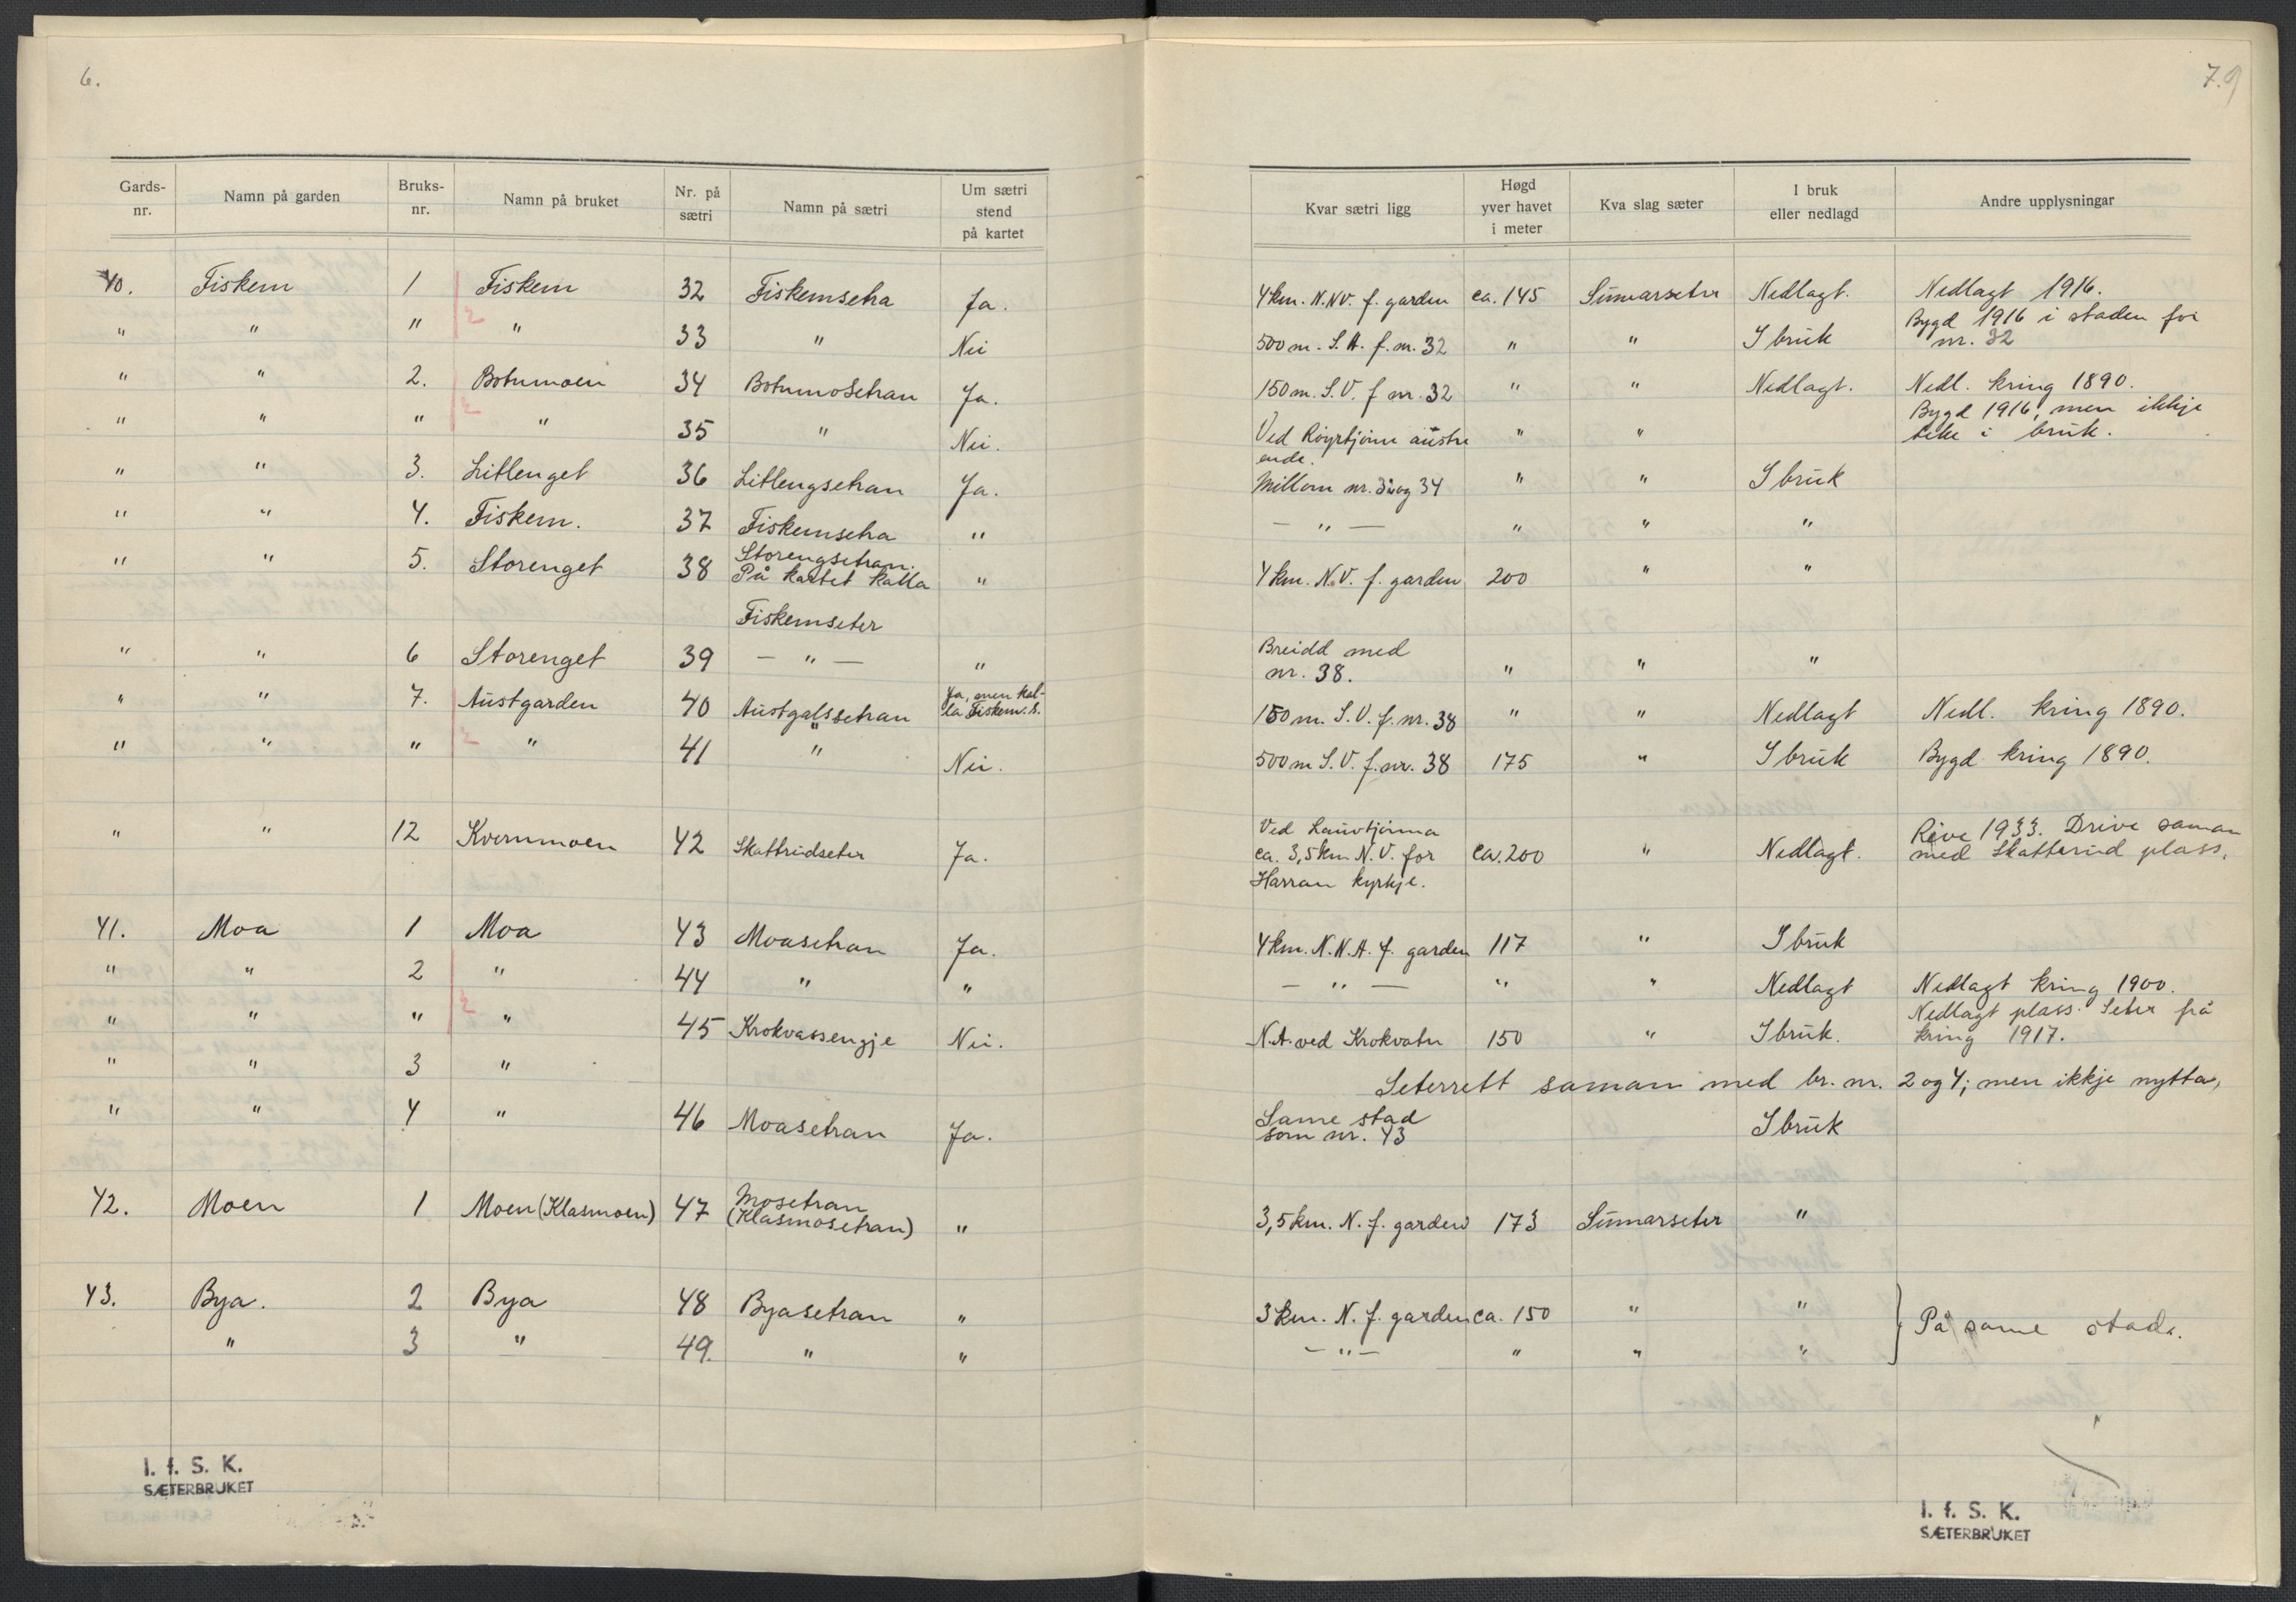 6.
Gards-nr. Namn på garden Bruks-nr. Namn på bruket Nr. på sætri Namn på sætri Um sætri stend på kartet
40. Fiskem 1 Fiskem 32 Fiskemsetra Ja.
" " " 2 " 33 " Nei
" " 2. Botnmoen 34 Botnmosetran Ja.
" " " 2 " 35 " Nei.
" " 3. Litlenget 36 Litlengsetran Ja.
" " 4. Fiskem. 37 Fiskemsetra "
" " 5. Storenget 38 Storengsetran. På kartet kalla "
Fiskemseter
" " 6 Storenget 39 — " — "
" " 7. Austgarden 40 Austgalssetran Ja, men kal-la Fiskem.s.
" " " 2 " 41 " Nei.
" " 12 Kvernmoen 42 Skattrudseter Ja.
41. Moa 1 Moa 43 Moasetran Ja.
" " 2 " 44 " "
" " " 2 " 45 Krokvassengje Nei.
" " 3 "
" " 4 " 46 Moasetran Ja.
42. Moen 1 Moen (Klasmoen) 47 Mosetran (Klasmosetran) "
43. Bya. 2 Bya 48 Byasetran "
" 3 " 49. " "
I. f. S. K.
SÆTERBRUKET
7.9
Kvar sætri ligg Høgd yver havet i meter Kva slag sæter I bruk eller nedlagd Andre upplysningar
4 km. N.NV. f. garden ca. 145 Sumarseter Nedlagt. Nedlagt 1916.
500 m. S.A. f. nr. 32 " " I bruk Bygd 1916 i staden for nr. 32
150 m. S.V. f nr. 32 " " Nedlagt. Nedl. kring 1890.
Ved Røyrtjønn austre ende. " " Bygd 1916, men ikkje teke i bruk.
Millom nr. 32 og 34 " " I bruk
— " — " " "
4 km. N.V. f. garden 200 " "
Breidd med
nr. 38. " " "
150 m. S.V. f. nr. 38 " " Nedlagt Nedl. kring 1890.
500 m S.V. f. nr. 38 175 " I bruk Bygd kring 1890.
Ved Lauvtjønna
ca. 3,5 km N.V. for ca. 200 " Nedlagt. Rive 1933. Drive saman med Skatterud plass.
Harran kyrkje.
4 km. N.N.A. f. garden 117 " I bruk
— " — " " Nedlagt Nedlagt kring 1900.
N.A. ved Krokvatn 150 " I bruk. Nedlagt plass. Seter frå kring 1917.
Seterrett saman med br. nr. 2 og 4; men ikkje nytta,
Same stad
som nr. 43 I bruk
3,5 km. N. f. garden 173 Sumarseter "
3 km. N. f. garden ca. 150 " " } På same stad.
— " — " " "
I. f. S. K.
SÆTERBRUKET